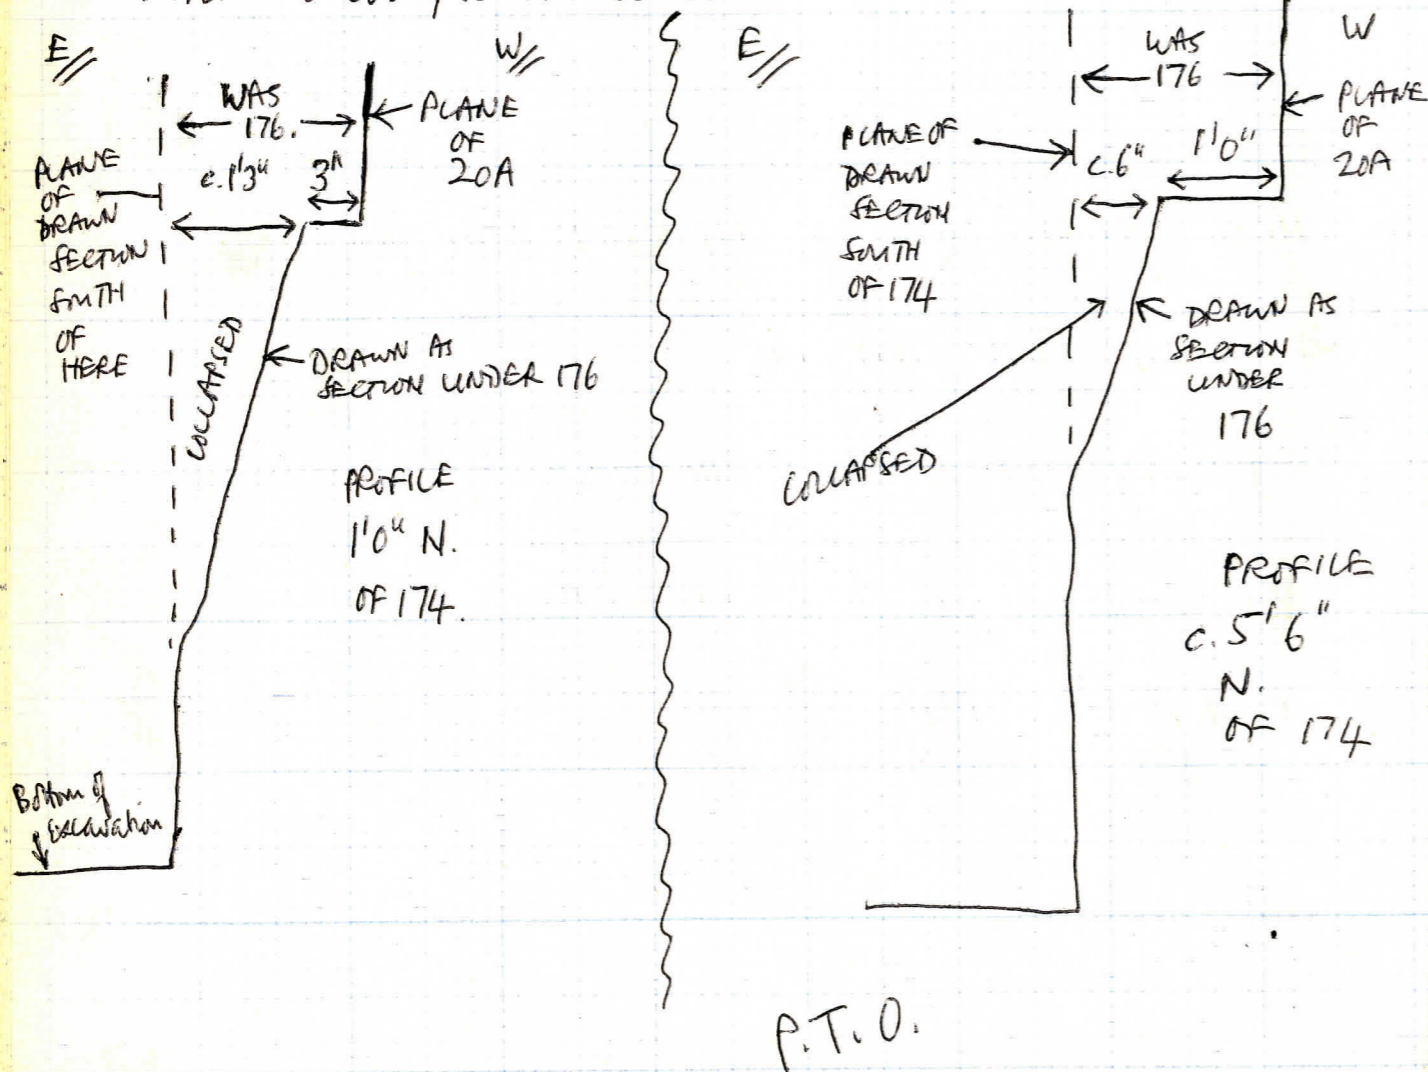 E
W
WAS
176.
PLANE
OF
20A
c.1'3"
3"
PLANE
OF
DRAWN
SECTION
SOUTH
OF
HERE
COLLAPSED
DRAWN AS
SECTION UNDER 176
PROFILE
1'0" N.
OF 174.
Bottom of
Excavation
E
W
WAS
176
PLANE
OF
20A
PLANE OF
DRAWN
SECTION
SOUTH
OF 174
c.6"
1'0"
DRAWN AS
SECTION
UNDER
176
COLLAPSED
PROFILE
c. 5'6"
N.
OF 174
P.T.O.